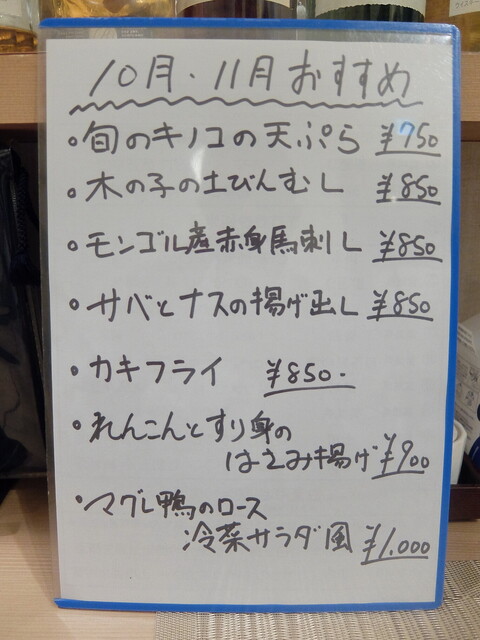 10月・11月 おすすめ
・旬のキノコの天ぷら ¥750
・木の子の土びんむし ¥850
・モンゴル産赤身馬刺し ¥850
・サバとナスの揚げ出し ¥850
・カキフライ ¥850.
・れんこんとすり身の
はさみ揚げ ¥900
・マグレ鴨のロース
冷菜サラダ風 ¥1.000